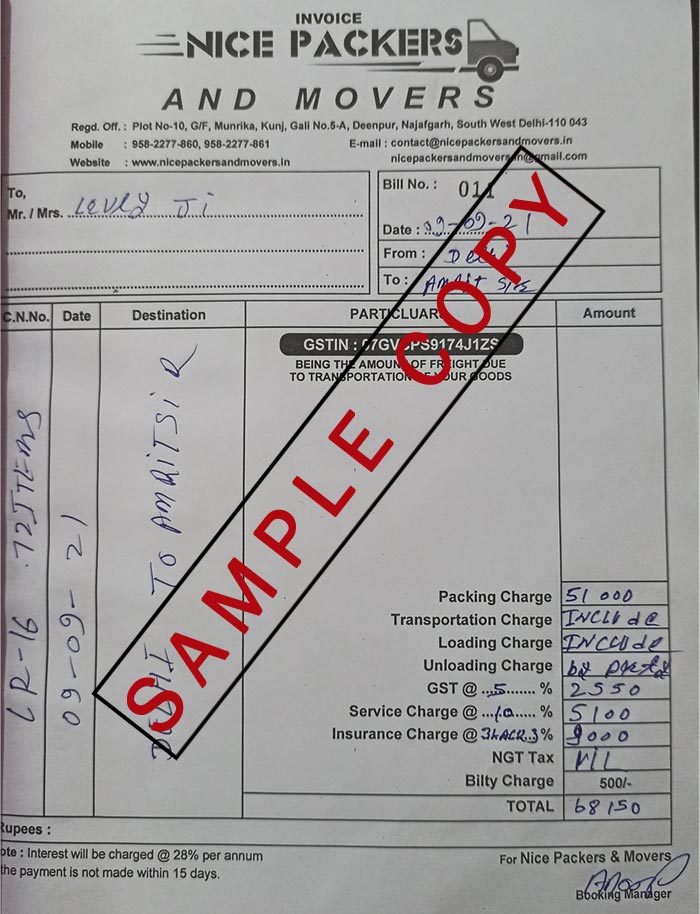 INVOICE
NICE PACKERS
AND MOVERS
Regd. Off. : Plot No-10, G/F, Munrika, Kunj, Gali No.5-A, Deenpur, Najafgarh, South West Delhi-110 043
Mobile : 958-2277-860, 958-2277-861 E-mail : contact@nicepackersandmovers.in
Website : www.nicepackersandmovers.in nicepackersandmovers.in@gmail.com
To, Bill No. : 011
Mr. / Mrs. Ji
Date : 09-09-21
From : Delhi
To : Amritsir
C.N.No. Date Destination PARTICLUARS Amount
LR-16 72 ITEMS
09-09-21
DELHI To AMRITSIR
GSTIN : 07GV PS9174J1ZS
BEING THE AMOUNT OF FREIGHT DUE
TO TRANSPORTATION OF YOUR GOODS
SAMPLE COPY
Packing Charge 51000
Transportation Charge INCLUde
Loading Charge INCLUde
Unloading Charge by Party
GST @ 5 % 2550
Service Charge @ 10 % 5100
Insurance Charge @ 3LACK 3% 9000
NGT Tax NIL
Bilty Charge 500/-
TOTAL 68150
Rupees :
ote : Interest will be charged @ 28% per annum For Nice Packers & Movers
the payment is not made within 15 days.
Booking Manager